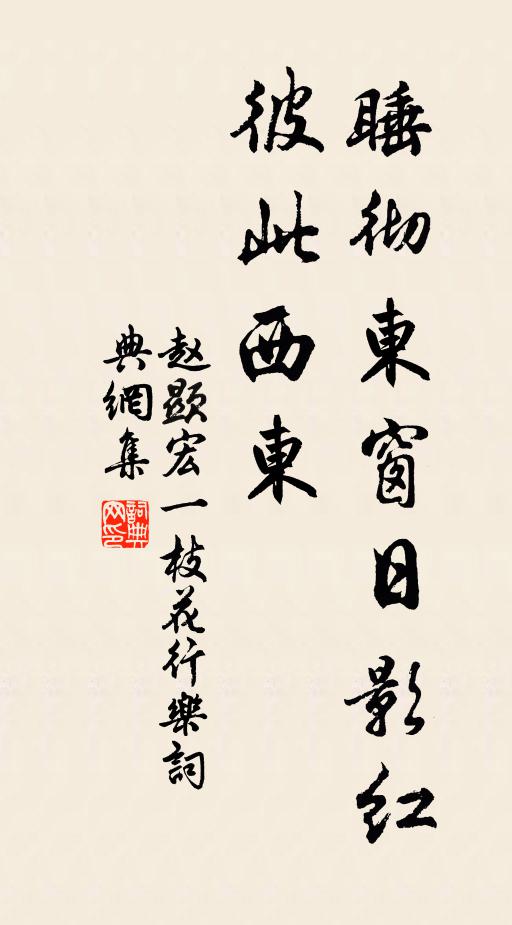 睡彻東窗日影红
彼此西東
赵顯宏一枝花行樂詞
典網集
詞典网印